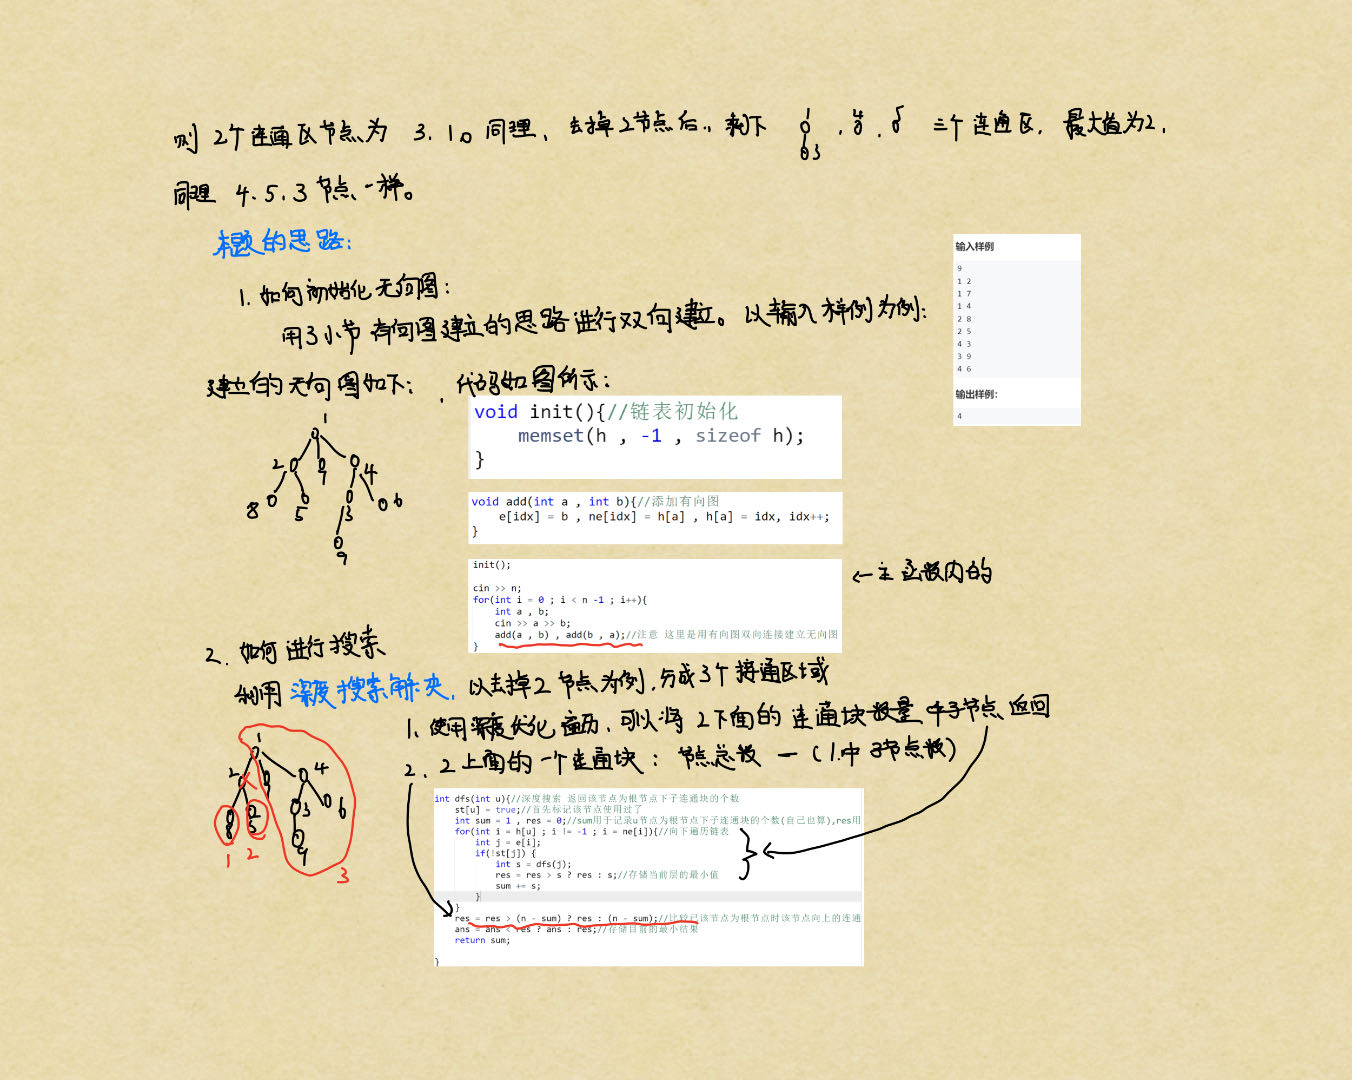 则 2个连通区节点为 3、1。同理，去掉2节点后，剩下 1 3 、4 、5 三个连通区，最大值为2，
同理 4、5、3 节点一样。
本题的思路：
1. 如何初始化无向图：
用3小节 有向图建立的思路进行双向建立。以输入样例为例：
输入样例
9
1 2
1 7
1 4
2 8
2 5
4 3
3 9
4 6
输出样例：
4
建立的无向图如下：
1
2 7 4
8 5 3 6
9
代码如图所示：
void init(){//链表初始化
memset(h , -1 , sizeof h);
}
void add(int a , int b){//添加有向图
e[idx] = b , ne[idx] = h[a] , h[a] = idx, idx++;
}
init();
cin >> n;
for(int i = 0 ; i < n -1 ; i++){
int a , b;
cin >> a >> b;
add(a , b) , add(b , a);//注意 这里是用有向图双向连接建立无向图
}
←主函数内的
2. 如何进行搜索
利用 深度搜索解决，以去掉2节点为例，分成3个接通区域
1. 使用深度优化遍历，可以将 2下面的 连通块数量 中子节点 返回
2. 2上面的一个连通块：节点总数 — (1.中子节点数)
1
2 4
3 6
8 5 9
1 2 3
int dfs(int u){//深度搜索 返回该节点为根节点下子连通块的个数
st[u] = true;//首先标记该节点使用过了
int sum = 1 , res = 0;//sum用于记录u节点为根节点下子连通块的个数(自己也算),res用
for(int i = h[u] ; i != -1 ; i = ne[i]){//向下遍历链表
int j = e[i];
if(!st[j]) {
int s = dfs(j);
res = res > s ? res : s;//存储当前层的最小值
sum += s;
}
}
res = res > (n - sum) ? res : (n - sum);//比较已该节点为根节点时该节点向上的连通
ans = ans < res ? ans : res;//存储目前的最小结果
return sum;
}